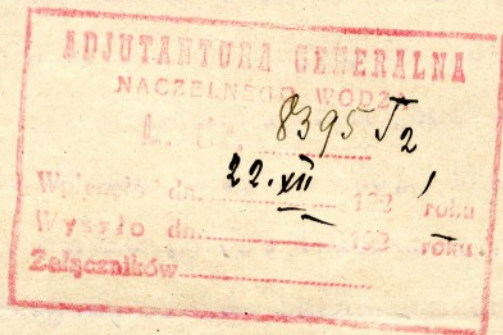 ADJUTANTURA GENERALNA
NACZELNEGO WODZA
L. dz. 8395 T2
Wpłynęło dn. 22.XII 192 roku
Wyszło dn. 192 roku.
Załączników